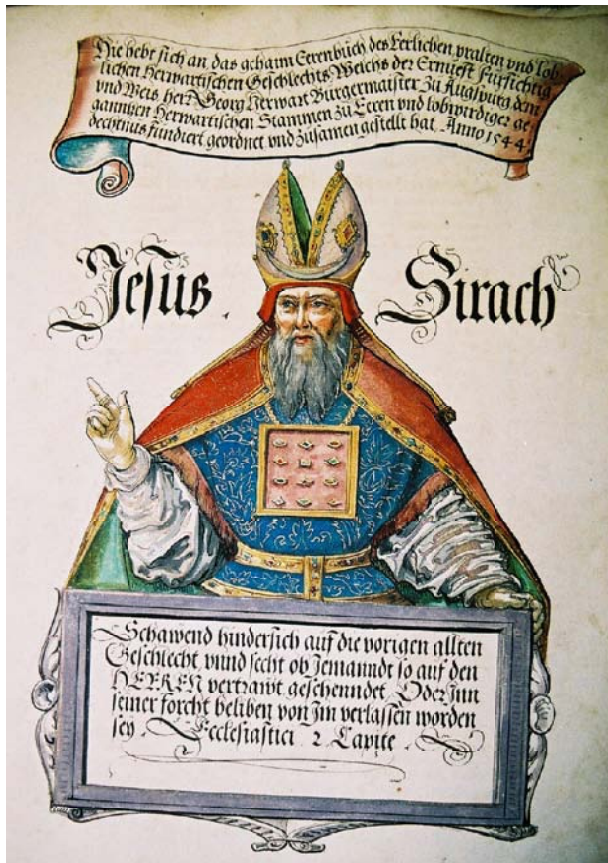 Hie hebt sich an das gehaim Eerenbuch des Eerlichen vralten vnd lob
lichen Herwartischen Geschlechts Welchs der Ernuest Fursichtig
vnd Weis herr Georg Herwart Burgermaister zu Augspurg dem
ganntzen Herwartischen Stammen zu Eeren vnd lobwirdiger ge
dechtnus fundiert geordnet vnd zusamen gstellt hat. Anno 1544.
Jesus. Sirach
Schawend hindersich auf die vorigen allten
Geschlecht vnnd secht ob Jemanndt so auf den
HERREN vertrawt geschenndet. Oder Inn
seiner forcht beliben von Im verlassen worden
sey. Ecclesiastici. 2. Capite.